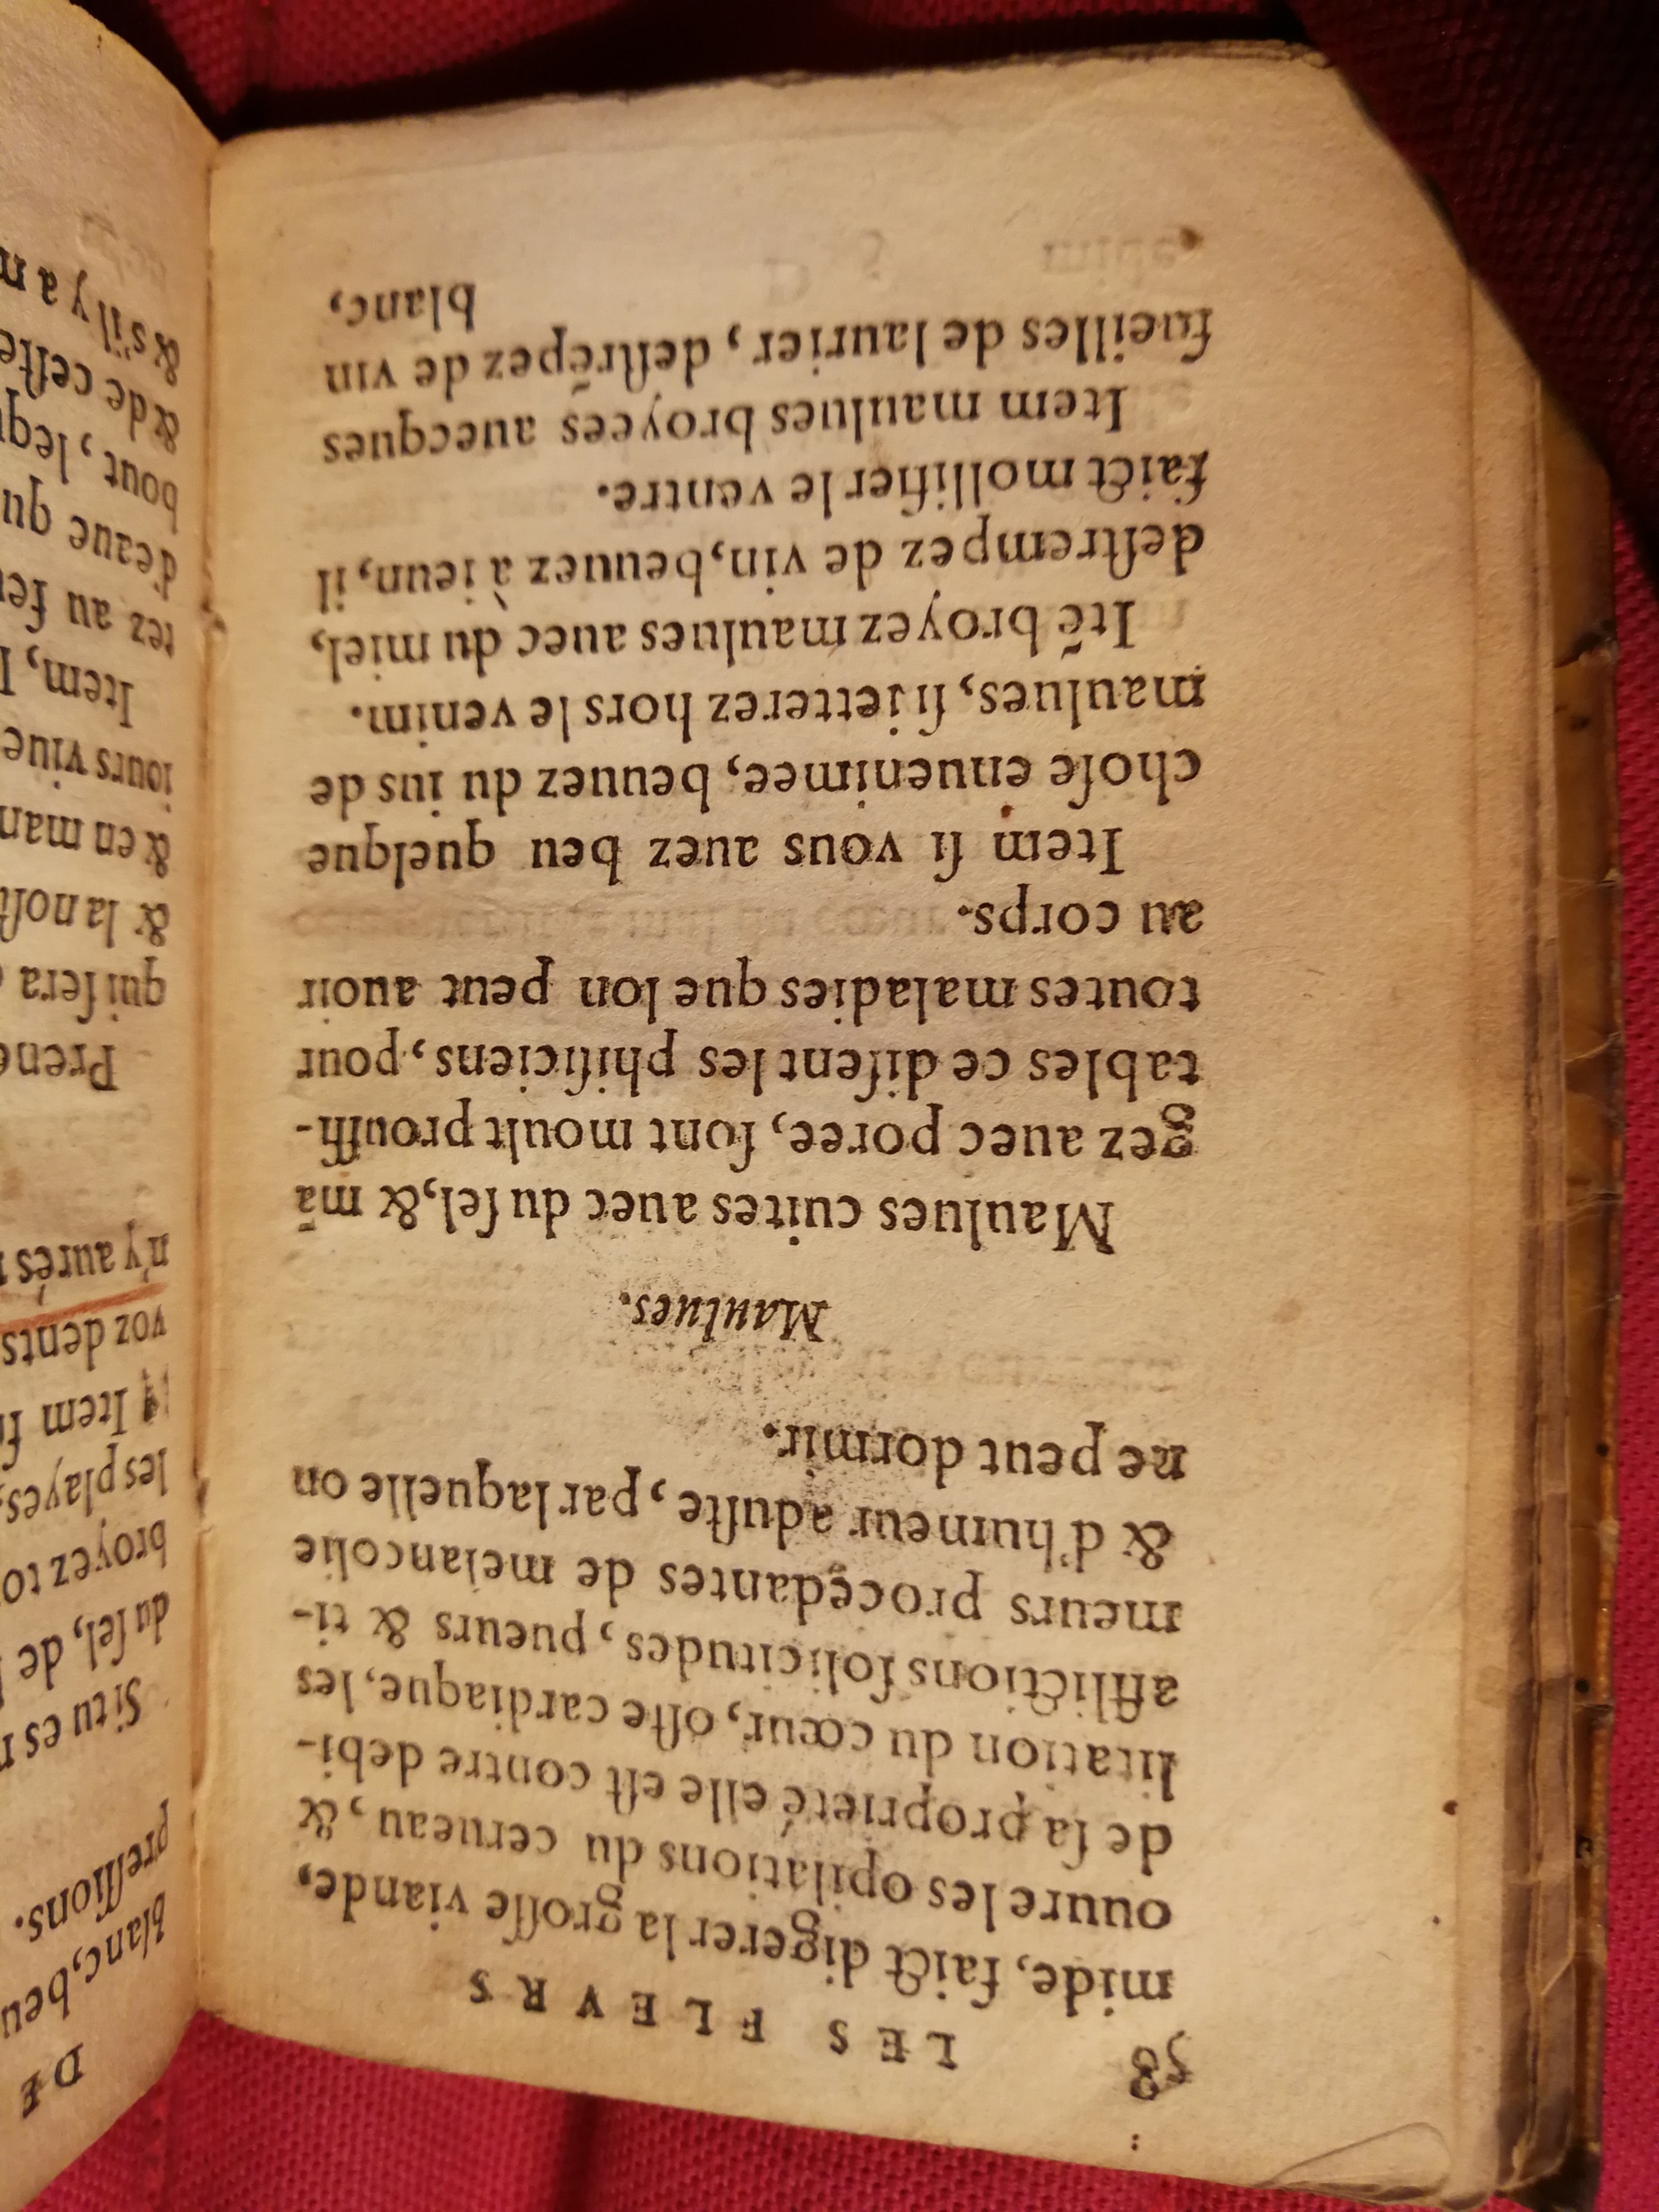 58
LES FLEVRS
mide, faict digerer la grosse viande,
ouure les opilations du cerueau, &
de sa proprieté elle est contre debi-
litation du cœur, oste cardiaque, les
afflictions solicitudes, pueurs & ti-
meurs procedantes de melancolie
& d'humeur aduste, par laquelle on
ne peut dormir.
Maulues.
Maulues cuites auec du sel, & mā
gez auec poree, sont moult prouffi-
tables ce disent les phisiciens, pour
toutes maladies que lon peut auoir
au corps.
Item si vous auez beu quelque
chose enuenimee, beuuez du ius de
maulues, si jetterez hors le venim.
Itē broyez maulues auec du miel,
destrempez de vin, beuuez à ieun, il
faict mollifier le ventre.
Item maulues broyees auecques
fueilles de laurier, destrēpez de vin
blanc,
DE
blanc, beu
pressions.
Si tu es
du sel, de
broyez to
les playes,
Item si
voz dents
n'y aurés
Prene
qui sera
& la nost
& en man
iours viue
Item,
tez au feu
d'eaue qu
bout, lequ
& de ceste
& s'il y a n